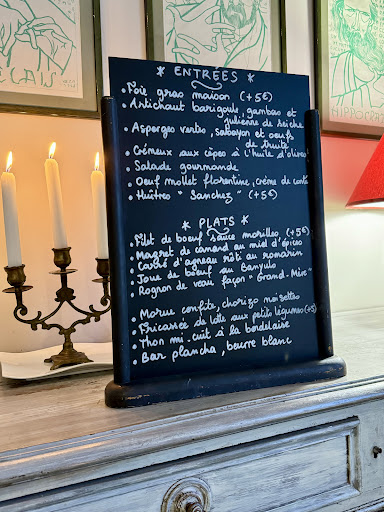 * ENTREES *
• Foie gras maison (+5€)
• Artichaut barigoule, gambas et
julienne de seiche
• Asperges vertes, sabayon et oeufs
de truite
• Crémeux aux cèpes à l'huile d'olives
• Salade gourmande
• Oeuf mollet florentine, crème de comté
• Huîtres " Sanchez " (+5€)
* PLATS *
• Filet de boeuf sauce morilles, (+5€)
• Magret de canard au miel d'épices
• Carré d'agneau rôti au romarin
• Joue de boeuf au Banyuls
• Rognon de veau façon " Grand-Mère "
• Morue confite, chorizo noisettes
• Fricassée de lotte aux petits légumes (+5)
• Thon mi-cuit à la bordelaise
• Bar plancha, beurre blanc
HIPPOCR